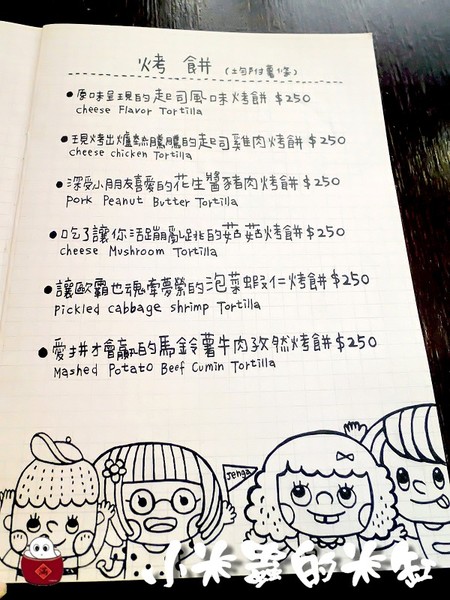 烤餅 (均附薯條)
●原味呈現的起司風味烤餅 $250
cheese Flavor Tortilla
●現烤出爐熱騰騰的起司雞肉烤餅 $250
cheese chicken Tortilla
●深受小朋友喜愛的花生醬豬肉烤餅 $250
Pork Peanut Butter Tortilla
●吃了讓你活蹦亂跳的菇菇烤餅 $250
cheese Mushroom Tortilla
●讓歐霸也魂牽夢縈的泡菜蝦仁烤餅 $250
Pickled cabbage shrimp Tortilla
●愛拼才會贏的馬鈴薯牛肉孜然烤餅 $250
Mashed Potato Beef Cumin Tortilla
Jenga
小米蟲的米缸